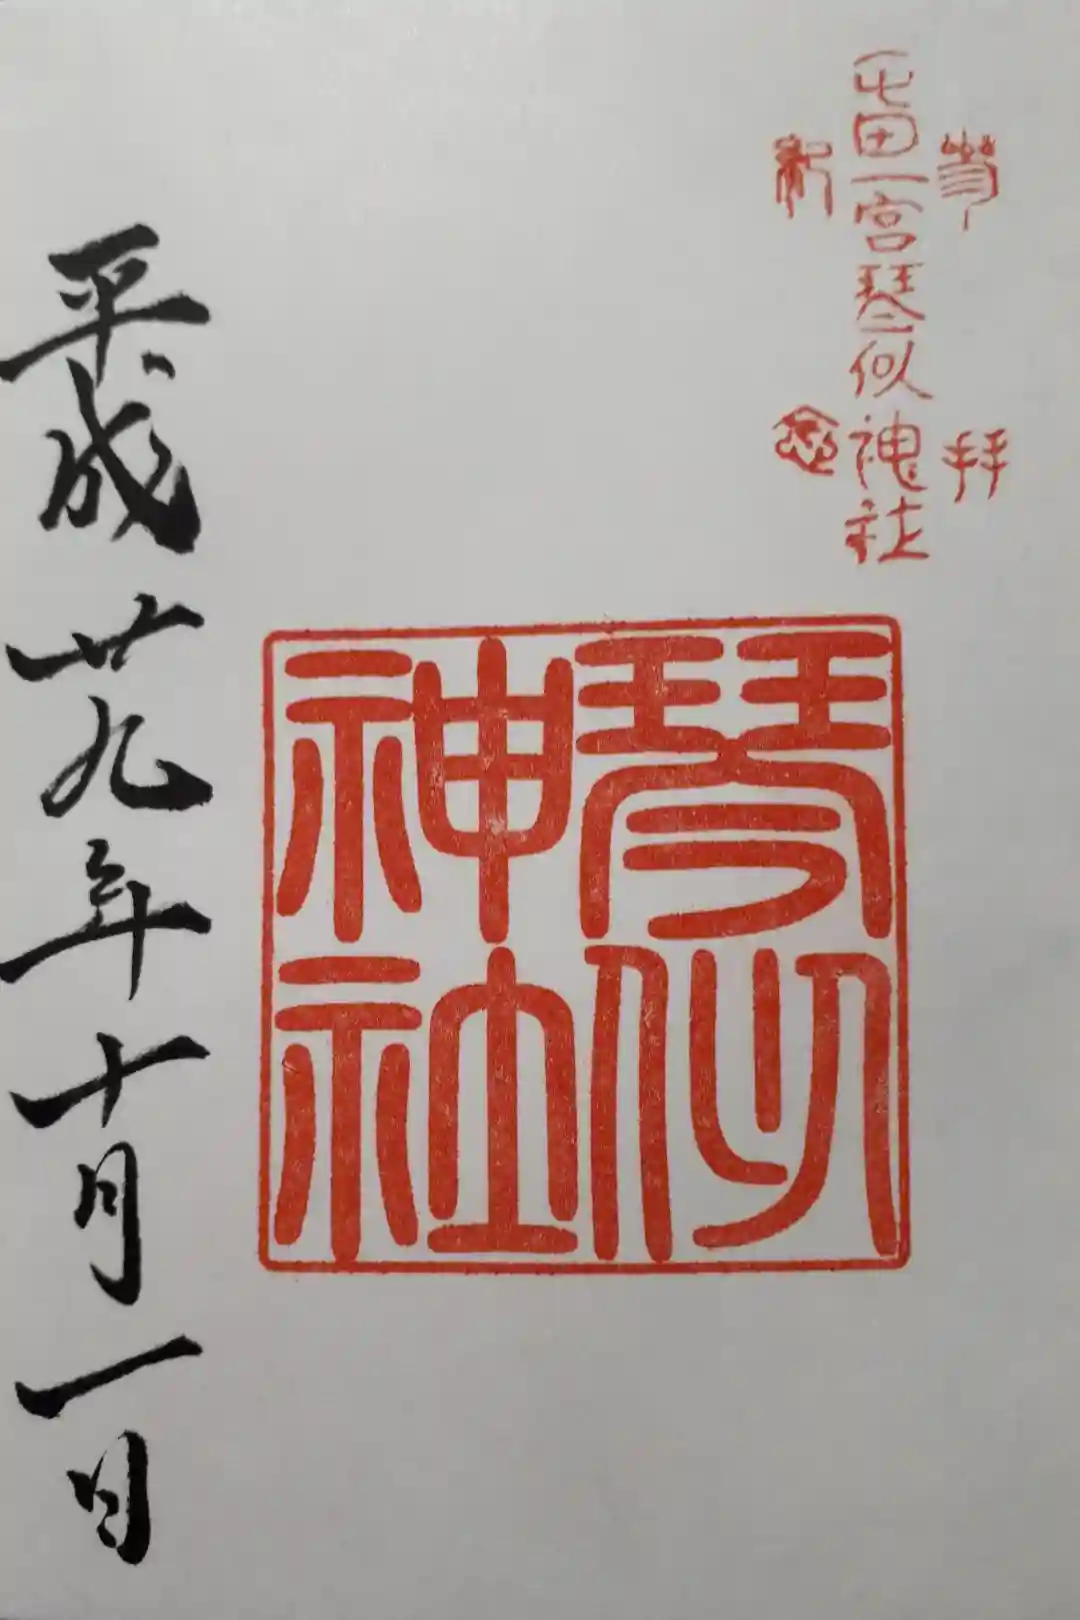 参拝
屯田一宮琴似神社
紀念
琴似
神社
平成廿九年十月一日